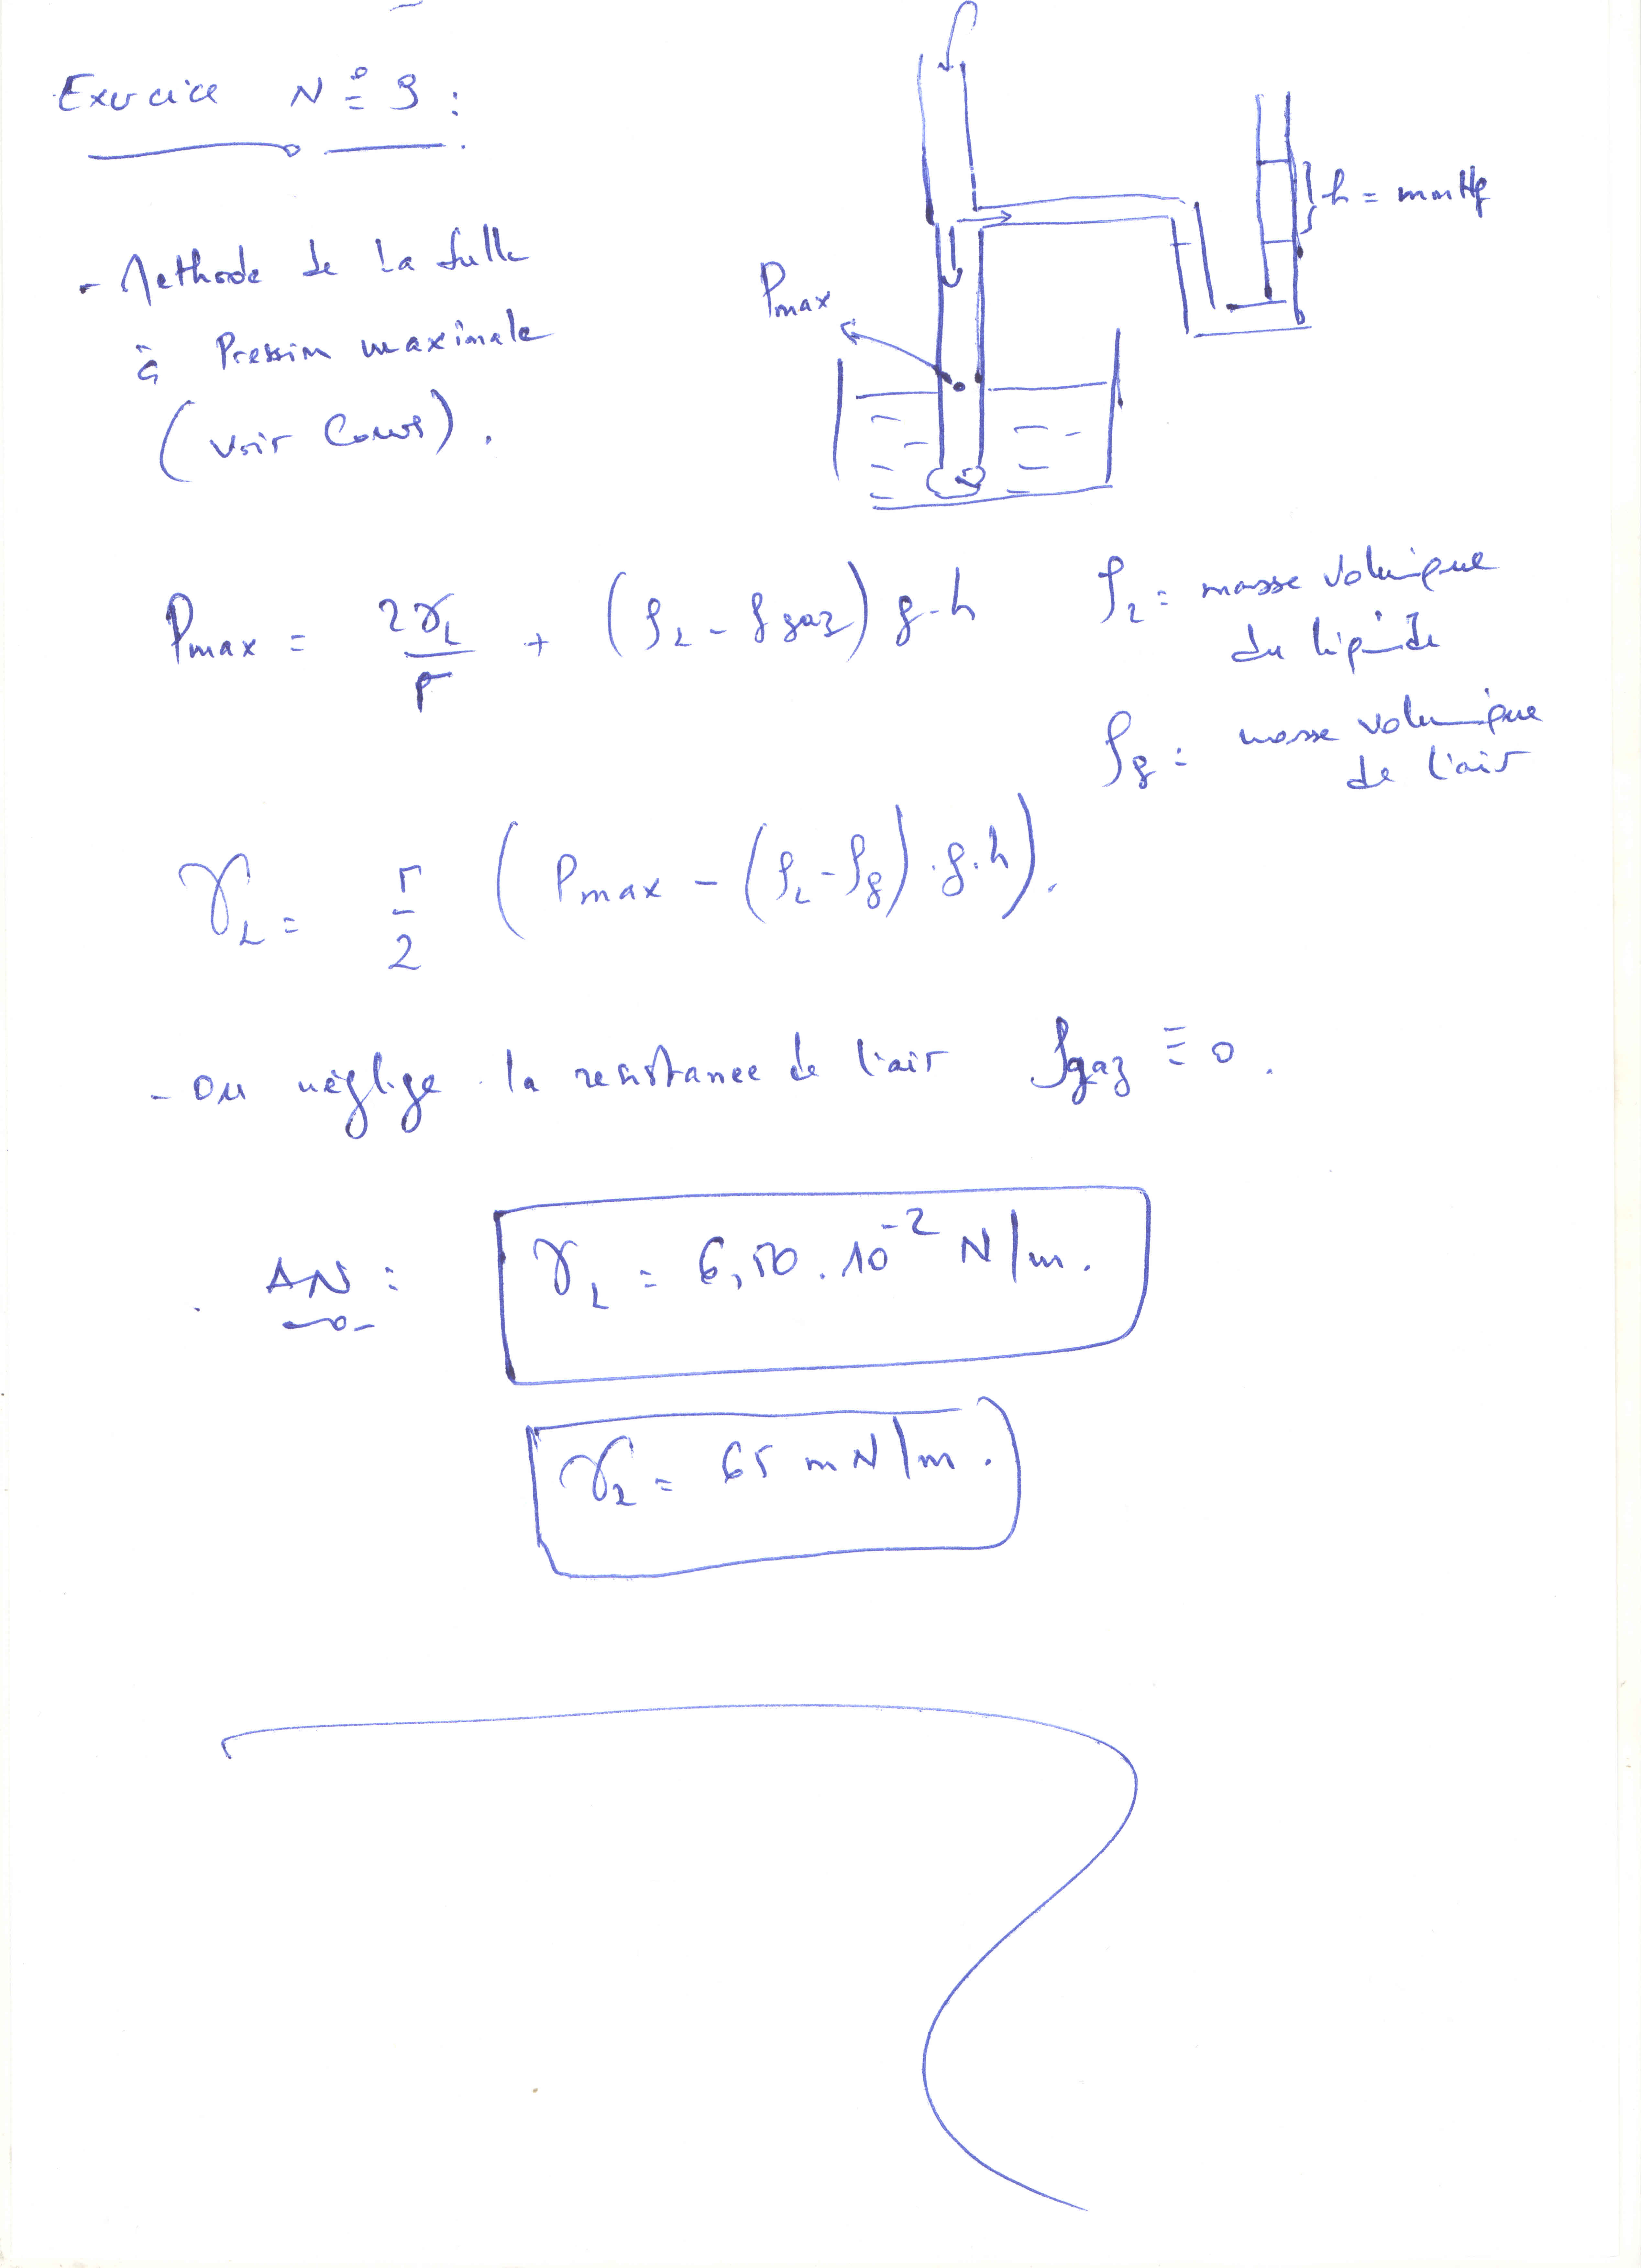 Exercice N° 9 :
- Methode de la bulle
à Pression maximale
(voir Cours).
Pmax
h = mmHg
Pmax = 2γL/r + (ρL - ρgaz) g.h
ρL = masse volumique
du liquide
ρg : masse volumique
de l'air
γL = r/2 (Pmax - (ρL - ρg).g.h).
- On néglige la resistance de l'air ρgaz ≡ 0.
AN : γL = 6,50.10⁻² N/m.
γL = 65 mN/m.